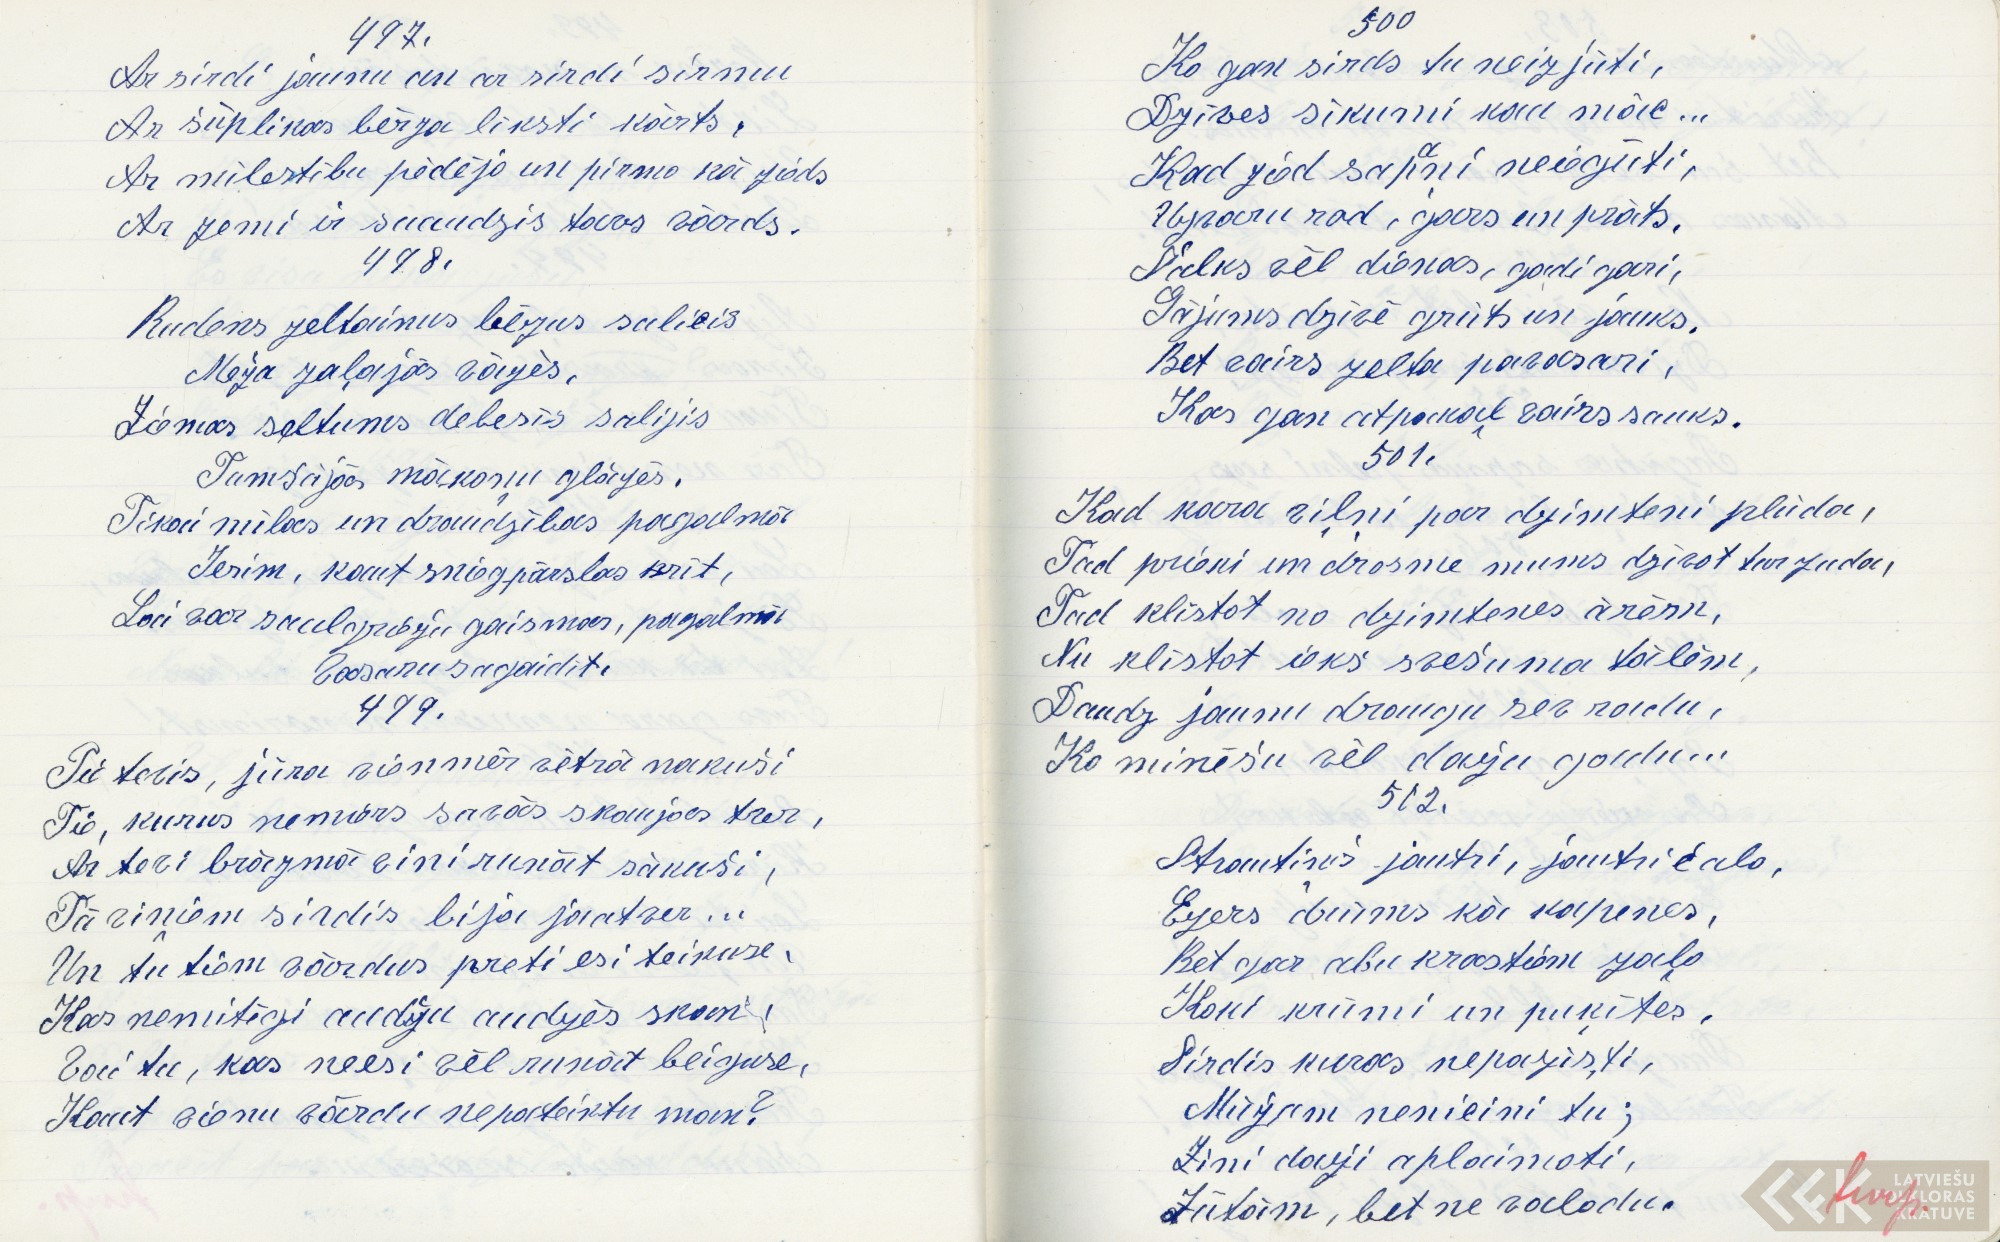 497.
Ar sirdi jaunu un ar sirdi sirmu
Ar šūplikas bērza līksti kārts.
Ar mīlestību pēdējo un pirmo kā zieds
Ar zemi ir saaudzis tavs vārds.
498.
Rudens zeltainus bērzus salicis
Meža zaļajās vāzēs,
Ziemas saltums debesīs salijis
Tumšajās mākoņu glāzēs.
Tikai mīlas un draudzības pagalmā
Iesim, kaut sniegpārslas krīt,
Lai var saulgriežu gaismas, pagalmā
Vasaru sagaidīt.
499.
Pie tevis, jūra vienmēr vētrā nakuši
Tie, kurus nemiers savās skaujās tver,
Ar tevi brāzmā viņi runāt sākuši,
Tā viņiem sirdis bija jaatver...
Un tu tiem vārdus pretī esi teikuse,
Kas nemitīgi audžu audzēs skan,
Vai tu, kas neesi vēl runāt beiguse,
Kaut vienu vārdu nepateiktu man?
500
Ko gan sirds tu neizjūti,
Dzīves sīkumi kad māc...
Kad zied sapņi neiegūti,
Uzvaru rod, gars un prāts.
Sāks vēl dienas, gadi gari,
Gājums dzīvē grūts un jauks.
Bet vairs zelta pavasari,
Kas gan atpakaļ vairs sauks.
501.
Kad kara viļņi par dzimteni plūda,
Tad prieki un drosme mums dzīvot tur zuda,
Tad klīstot no dzimtenes ārēm,
Nu klīstot ieks svešuma tālēm,
Daudz jaunu draugu sev radu,
Ko minēšu vēl dažu gadu...
512.
Strautiņš jautri, jautri čalo,
Ezers drūms kā kapenes,
Bet gar abu krastiem zaļo
Koki krūmi un puķītes.
Sirdis kuras nepazīsti,
Mūžam nenicini tu;
Zini daži aplaimoti,
Jūtām, bet ne valodu.
LATVIEŠU
FOLKLORAS
KRĀTUVE